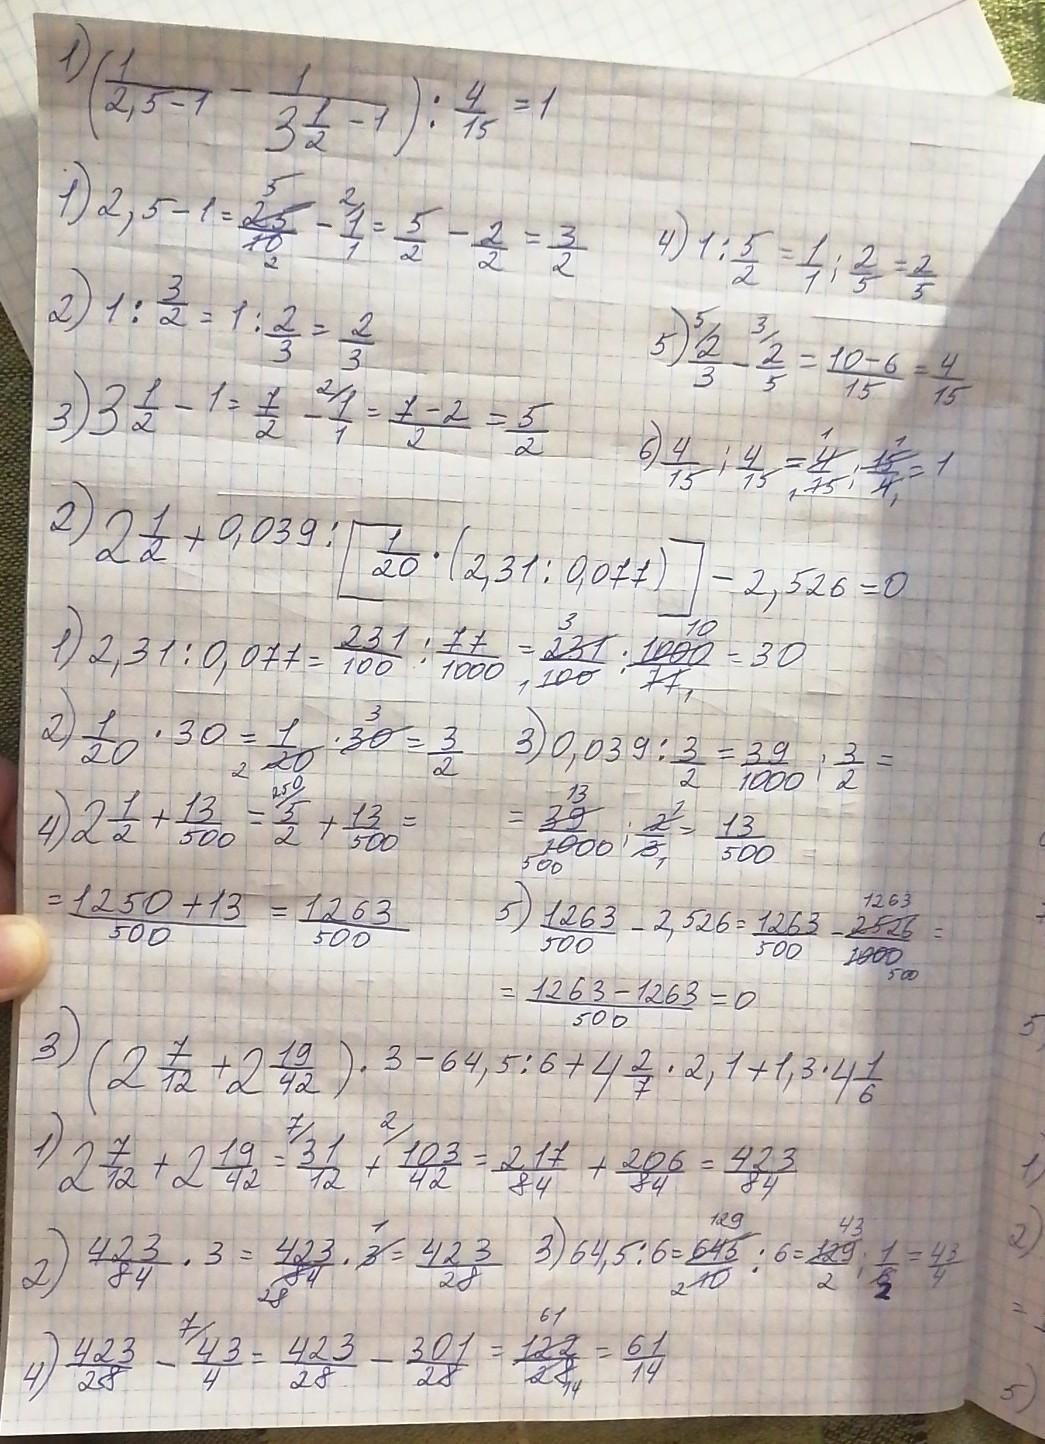 1) (1/(2,5-1) - 1/(3 1/2 - 1)) : 4/15 = 1
1) 2,5 - 1 = 25/10 - 1/1 = 5/2 - 2/2 = 3/2
4) 1 : 5/2 = 1/1 ; 2/5 = 2/5
2) 1 : 3/2 = 1 : 2/3 = 2/3
5) 2/3 - 2/5 = (10-6)/15 = 4/15
3) 3 1/2 - 1 = 7/2 - 1/1 = (7-2)/2 = 5/2
6) 4/15 ; 4/15 = 4/15 ; 15/4 = 1
2) 2 1/2 + 0,039 : [1/20 · (2,31 : 0,077)] - 2,526 = 0
1) 2,31 : 0,077 = 231/100 : 77/1000 = 231/100 · 1000/77 = 30
2) 1/20 · 30 = 1/20 · 30 = 3/2
3) 0,039 : 3/2 = 39/1000 ; 3/2 =
= 39/1000 ; 2/3 = 13/500
4) 2 1/2 + 13/500 = 5/2 + 13/500 =
= (1250+13)/500 = 1263/500
5) 1263/500 - 2,526 = 1263/500 - 2526/1000 =
= (1263-1263)/500 = 0
3) (2 7/12 + 2 19/42) · 3 - 64,5 : 6 + 4 2/7 · 2,1 + 1,3 · 4 1/6
1) 2 7/12 + 2 19/42 = 31/12 + 103/42 = 217/84 + 206/84 = 423/84
2) 423/84 · 3 = 423/84 · 3 = 423/28
3) 64,5 : 6 = 645/10 : 6 = 129/2 ; 1/6 = 43/4
4) 423/28 - 43/4 = 423/28 - 301/28 = 122/28 = 61/14